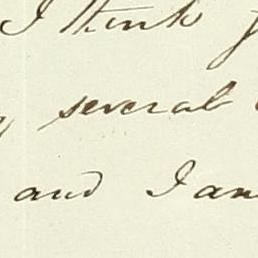 I think
several
and I am